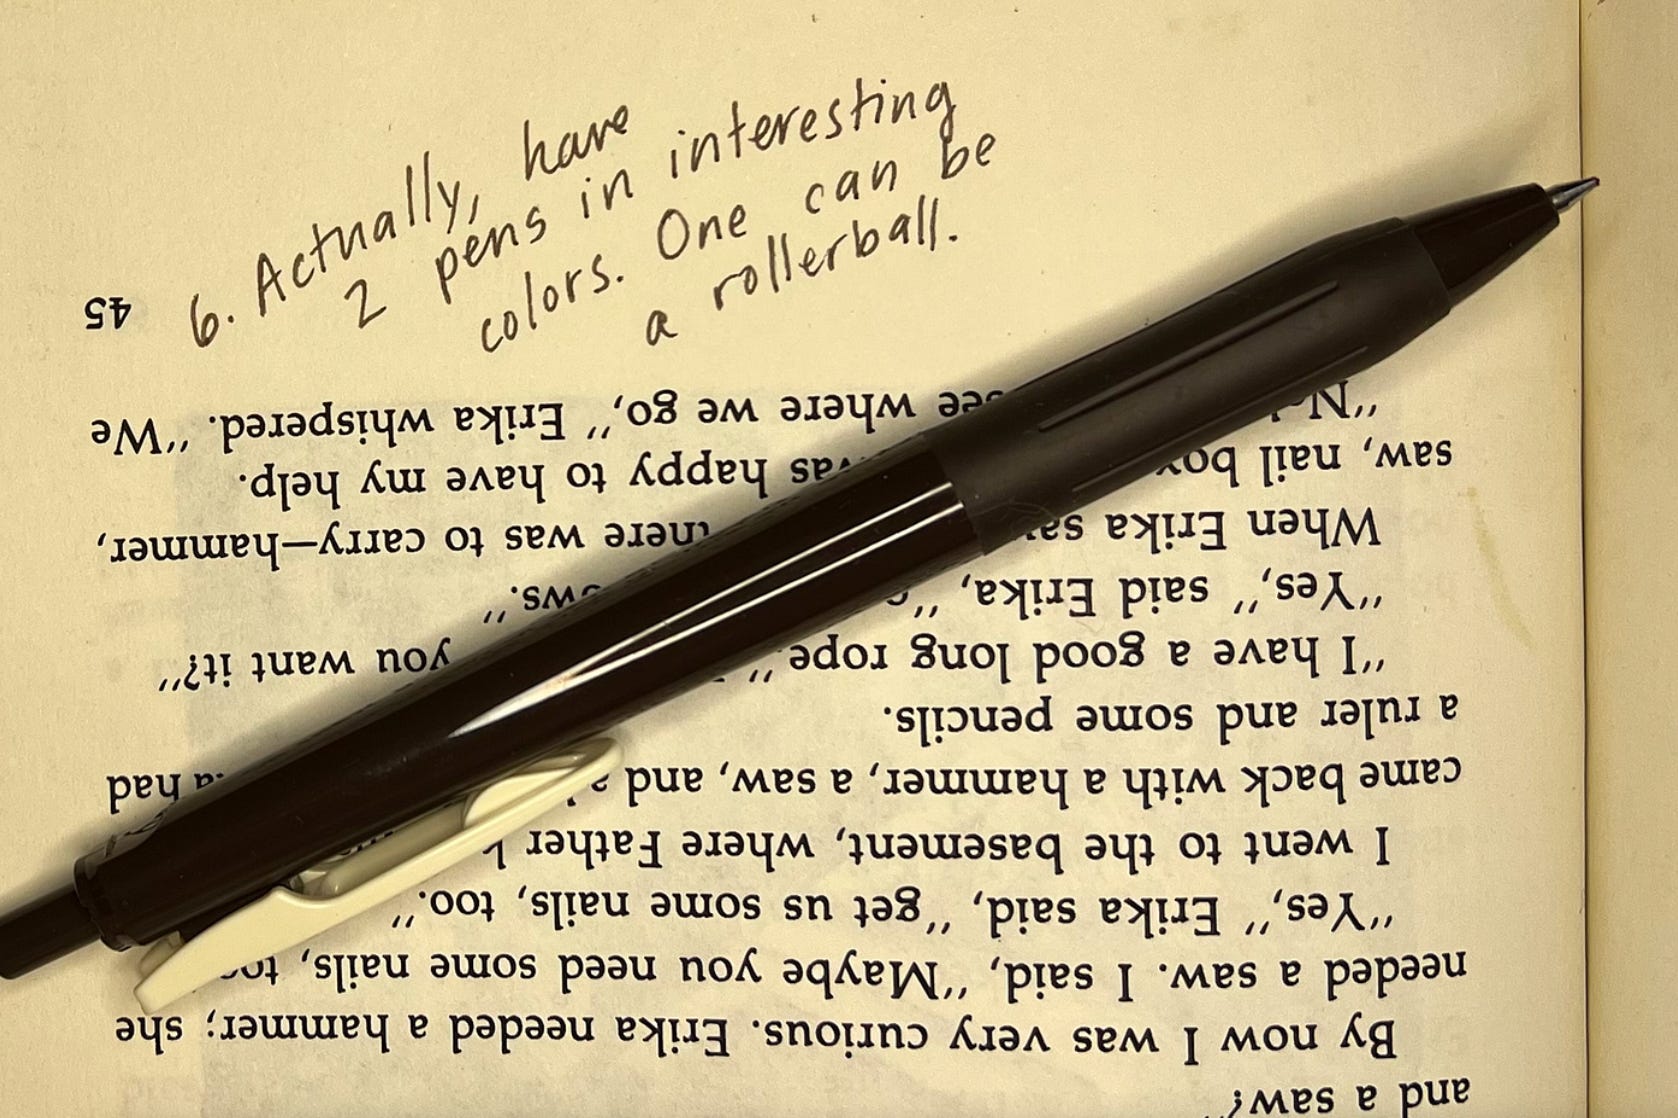 6. Actually, have
2 pens in interesting
colors. One can be
a rollerball.
and a saw?"
By now I was very curious. Erika needed a hammer; she
needed a saw. I said, "Maybe you need some nails, too
"Yes," Erika said, "get us some nails, too."
I went to the basement, where Father
came back with a hammer, a saw, and had
a ruler and some pencils.
"I have a good long rope." you want it?"
"Yes," said Erika,
When Erika saw there was to carry—hammer,
saw, nail box was happy to have my help.
see where we go," Erika whispered. "We
45